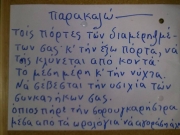 Παρακαλώ
Τοις πόρτες των διαμερημά-
των σας κ' την έξω πόρτα, νά
της κλύνεται από κοντά
Το μεσημέρη κ' την νύχτα.
Νά σέβεσται την ισιχία των
συνκατήκων σας.
όποιος πήρε την
μέσα από τα ωρολόγια νά